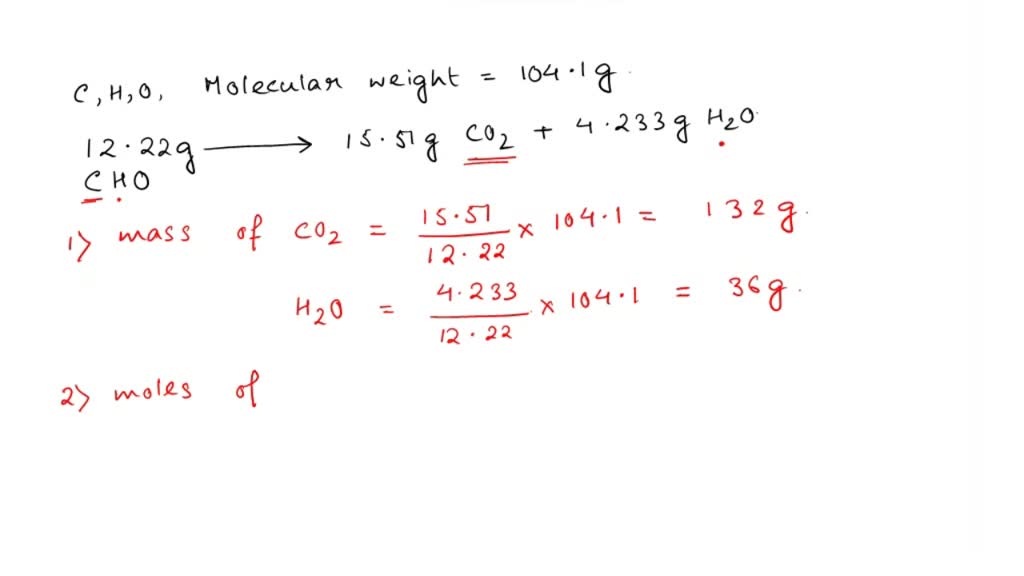 C, H, O, Molecular weight = 104.1g.
12.22g → 15.51g CO₂ + 4.233g H₂O
CHO
1) mass of CO₂ = 15.51/12.22 × 104.1 = 132g.
H₂O = 4.233/12.22 × 104.1 = 36g.
2) moles of